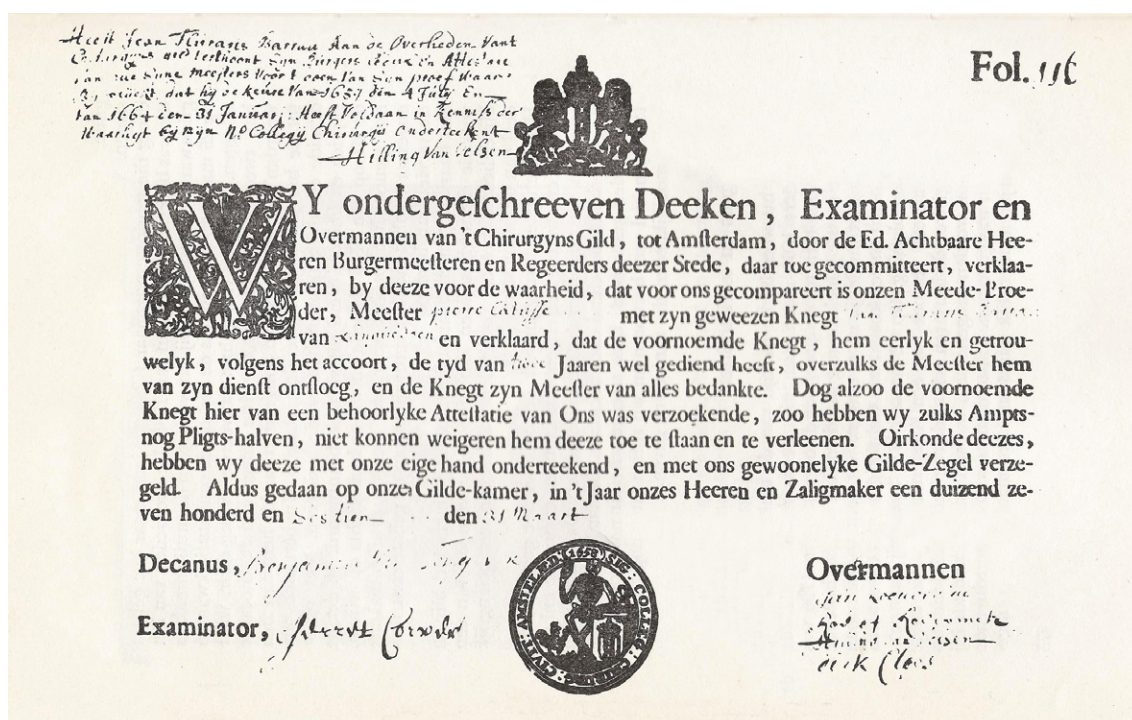 Heeft Jean
Aan de Overlieden Vant
Syn Burgers
en
meesters
Syn proef
dat hy de keure Van 1657 den 4 July En
Van 1664 den 31 Januarj: Heeft Voldaan in Kennisse der
Waarheyt by myn Collegij Chirurgij onderteekent
Van Velsen
Fol. 116
WY ondergeſchreeven Deeken, Examinator en
Overmannen van 't Chirurgyns Gild, tot Amſterdam, door de Ed. Achtbaare Hee-
ren Burgermeeſteren en Regeerders deezer Stede, daar toe gecommitteert, verklaa-
ren, by deeze voor de waarheid, dat voor ons gecompareert is onzen Meede-Broe-
der, Meeſter pierre met zyn geweezen Knegt
van en verklaard, dat de voornoemde Knegt, hem eerlyk en getrou-
welyk, volgens het accoort, de tyd van twee Jaaren wel gediend heeft, overzulks de Meeſter hem
van zyn dienſt ontſloeg, en de Knegt zyn Meeſter van alles bedankte. Dog alzoo de voornoemde
Knegt hier van een behoorlyke Atteſtatie van Ons was verzoekende, zoo hebben wy zulks Ampts-
nog Pligts-halven, niet konnen weigeren hem deeze toe te ſtaan en te verleenen. Oirkonde deezes,
hebben wy deeze met onze eige hand onderteekend, en met ons gewoonelyke Gilde-Zegel verze-
geld. Aldus gedaan op onze Gilde-kamer, in 't Jaar onzes Heeren en Zaligmaker een duizend ze-
ven honderd en Sestien den 31 Maart
Decanus, Benjamin
Overmannen
Jan
Examinator, Gerret
van Velsen
dirk Cloes
1658 SIG: COLLEG: CHIRURG: CIVIT: AMSTELÆD: